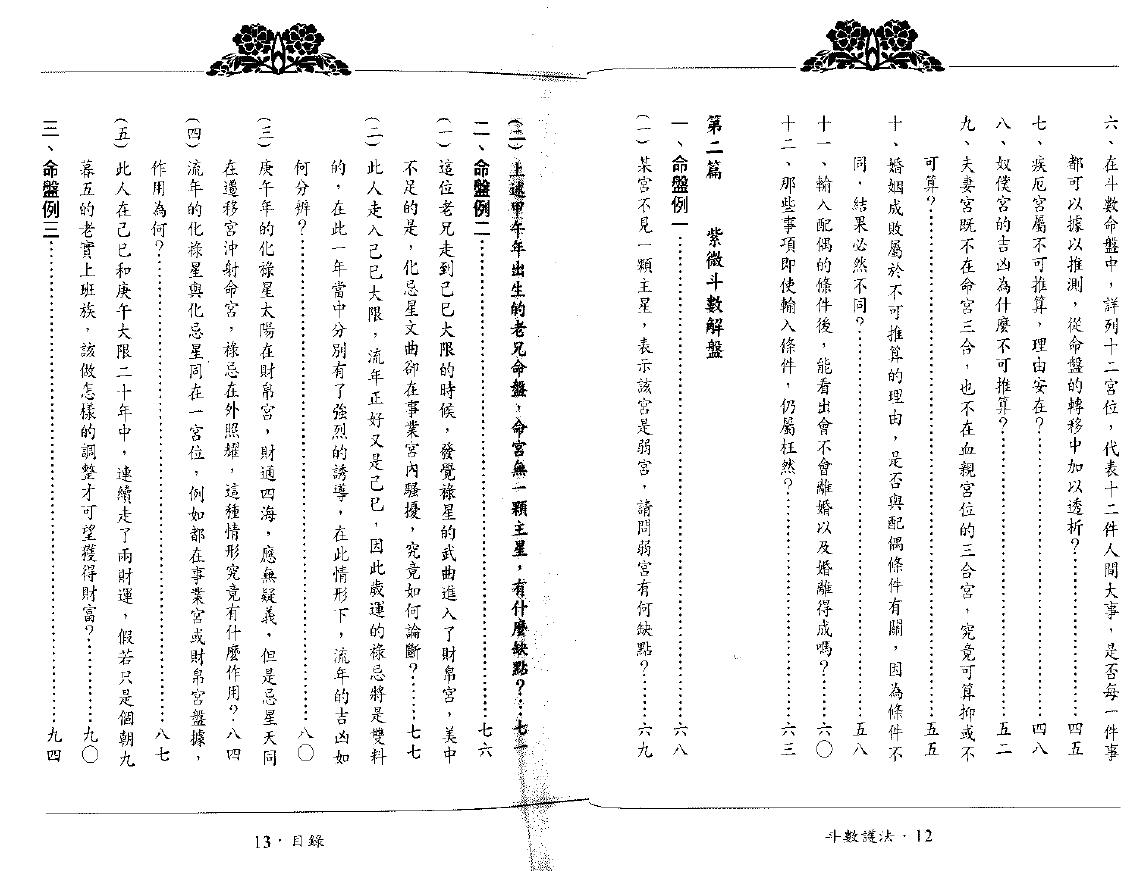 六、在斗數命盤中，詳列十二宮位，代表十二件人間大事，是否每一件事
都可以據以推測，從命盤的轉移中加以透析？……四五
七、疾厄宮屬不可推算，理由安在？……四八
八、奴僕宮的吉凶為什麼不可推算？……五二
九、夫妻宮既不在命宮三合，也不在血親宮位的三合宮，究竟可算抑或不
可算？……五五
十、婚姻成敗屬於不可推算的理由，是否與配偶條件有關，因為條件不
同，結果必然不同？……五八
十一、輸入配偶的條件後，能看出會不會離婚以及婚離得成嗎？……六〇
十二、那些事項即使輸入條件，仍屬枉然？……六三
第二篇 紫微斗數解盤
一、命盤例一……六八
(一)某宮不見一顆主星，表示該宮是弱宮，請問弱宮有何缺點？……六九
斗數護法·12
(二)上述甲午年出生的老兄命盤，命宮無一顆主星，有什麼缺點？……七一
二、命盤例二……七六
(一)這位老兄走到己巳大限的時候，發覺祿星的武曲進入了財帛宮，美中
不足的是，化忌星文曲卻在事業宮內騷擾，究竟如何論斷？……七七
(二)此人走入己巳大限，流年正好又是己巳，因此歲運的祿忌將是雙料
的，在此一年當中分別有了強烈的誘導，在此情形下，流年的吉凶如
何分辨？……八〇
(三)庚午年的化祿星太陽在財帛宮，財通四海，應無疑義，但是忌星天同
在遷移宮沖射命宮，祿忌在外照耀，這種情形究竟有什麼作用？……八四
(四)流年的化祿星與化忌星同在一宮位，例如都在事業宮或財帛宮盤據，
作用為何？……八七
(五)此人在己巳和庚午大限二十年中，連續走了兩財運，假若只是個朝九
暮五的老實上班族，該做怎樣的調整才可望獲得財富？……九〇
三、命盤例三……九四
13·目錄